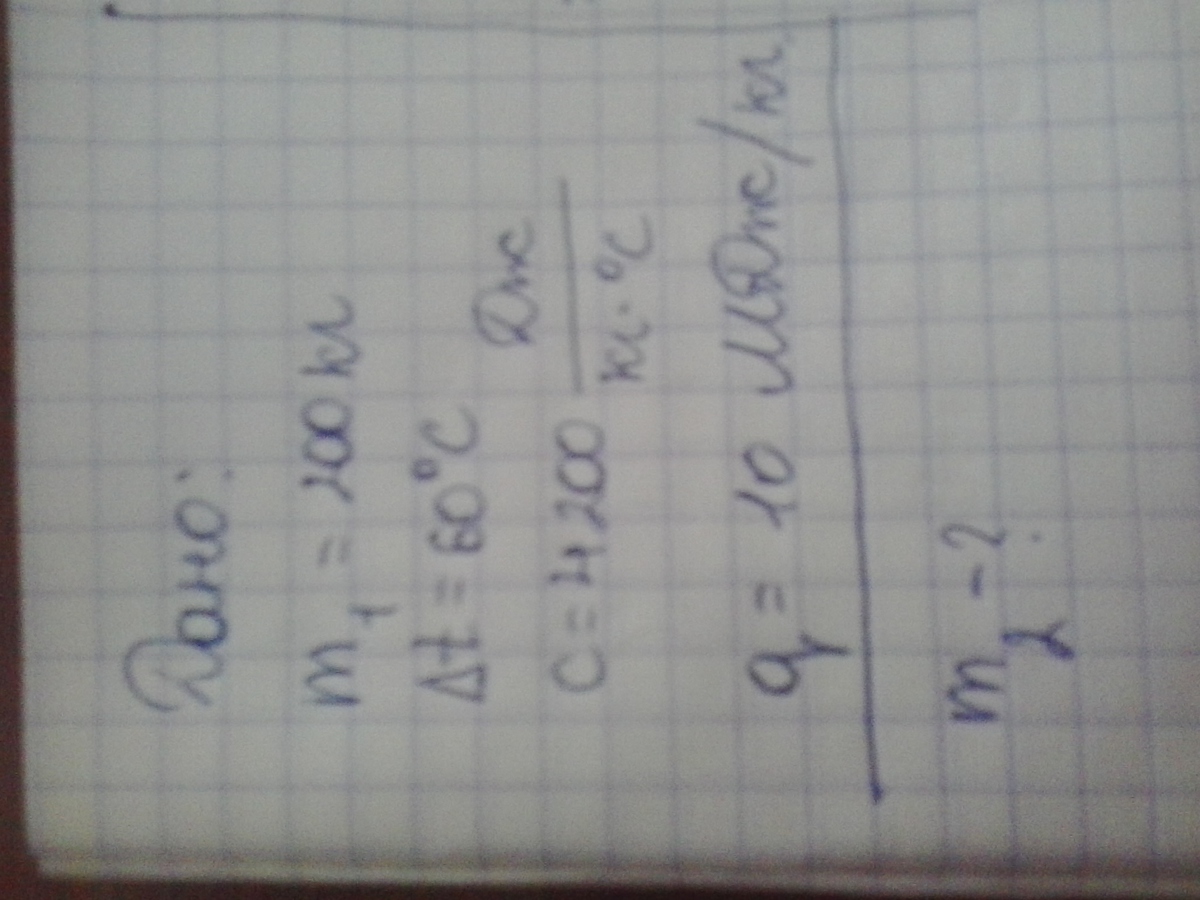 Дано:
m₁ = 200 кг
Δt = 60°C
c = 4200 Дж / кг·°C
q = 10 МДж/кг
m₂ - ?